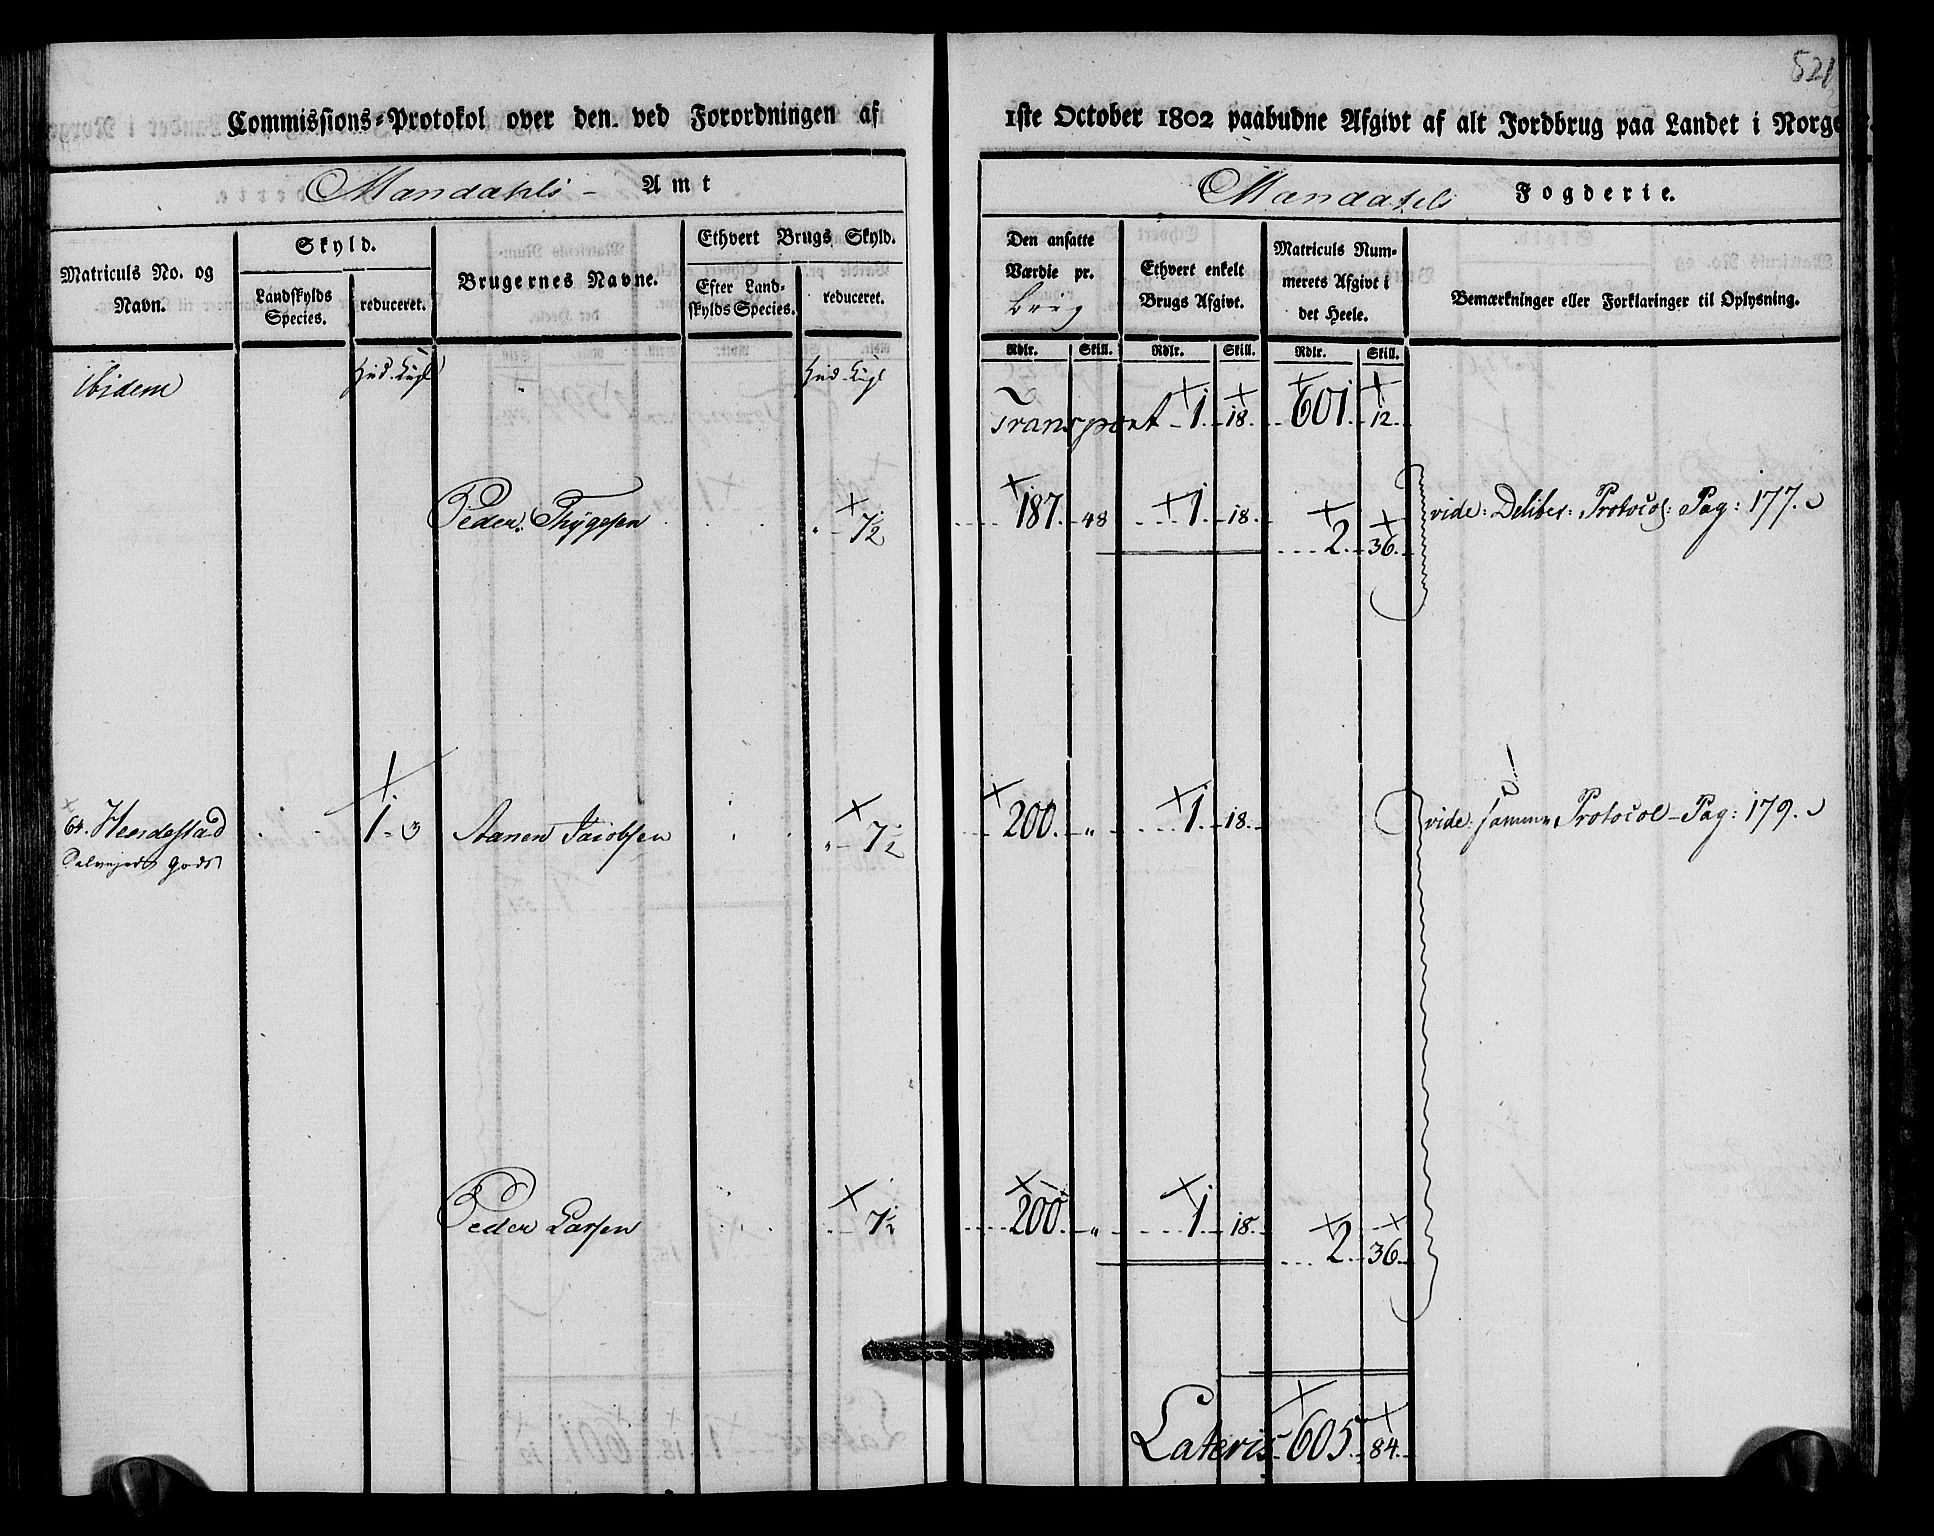 521
Commissions-Protokol over den ved Forordningen af 1ste October 1802 paabudne Afgivt af alt Jordbrug paa Landet i Norge.
Mandahls Amt
Mandahls Fogderie.
Matriculs No. og Navn.
Skyld.
Landskylds Species.
reduceret.
Brugernes Navne.
Ethvert Brugs Skyld.
Efter Landskylds Species.
reduceret.
Den ansatte Værdie pr. Brug
Ethvert enkelt Brugs Afgivt.
Matriculs Nummerets Afgivt i det Heele.
Bemærkninger eller Forklaringer til Oplysning.
Rdlr. Skill. Rdlr. Skill. Rdlr. Skill.
Ibidem Hud. Kugl Hud. Kugl
Transport 1. 18. 601. 12.
Peder Thygesen " 7½ 187. 48 1. 18. 2. 36. vide: Deliber: Protocol: Pag: 177.
64. 1. 3 Aanen Jacobsen " 7½ 200. " 1. 18. vide: samme Protocol Pag: 179.
Selvejer Gods
Peder Larsen " 7½ 200. " 1. 18. 2. 36.
Lateris 605. 84.